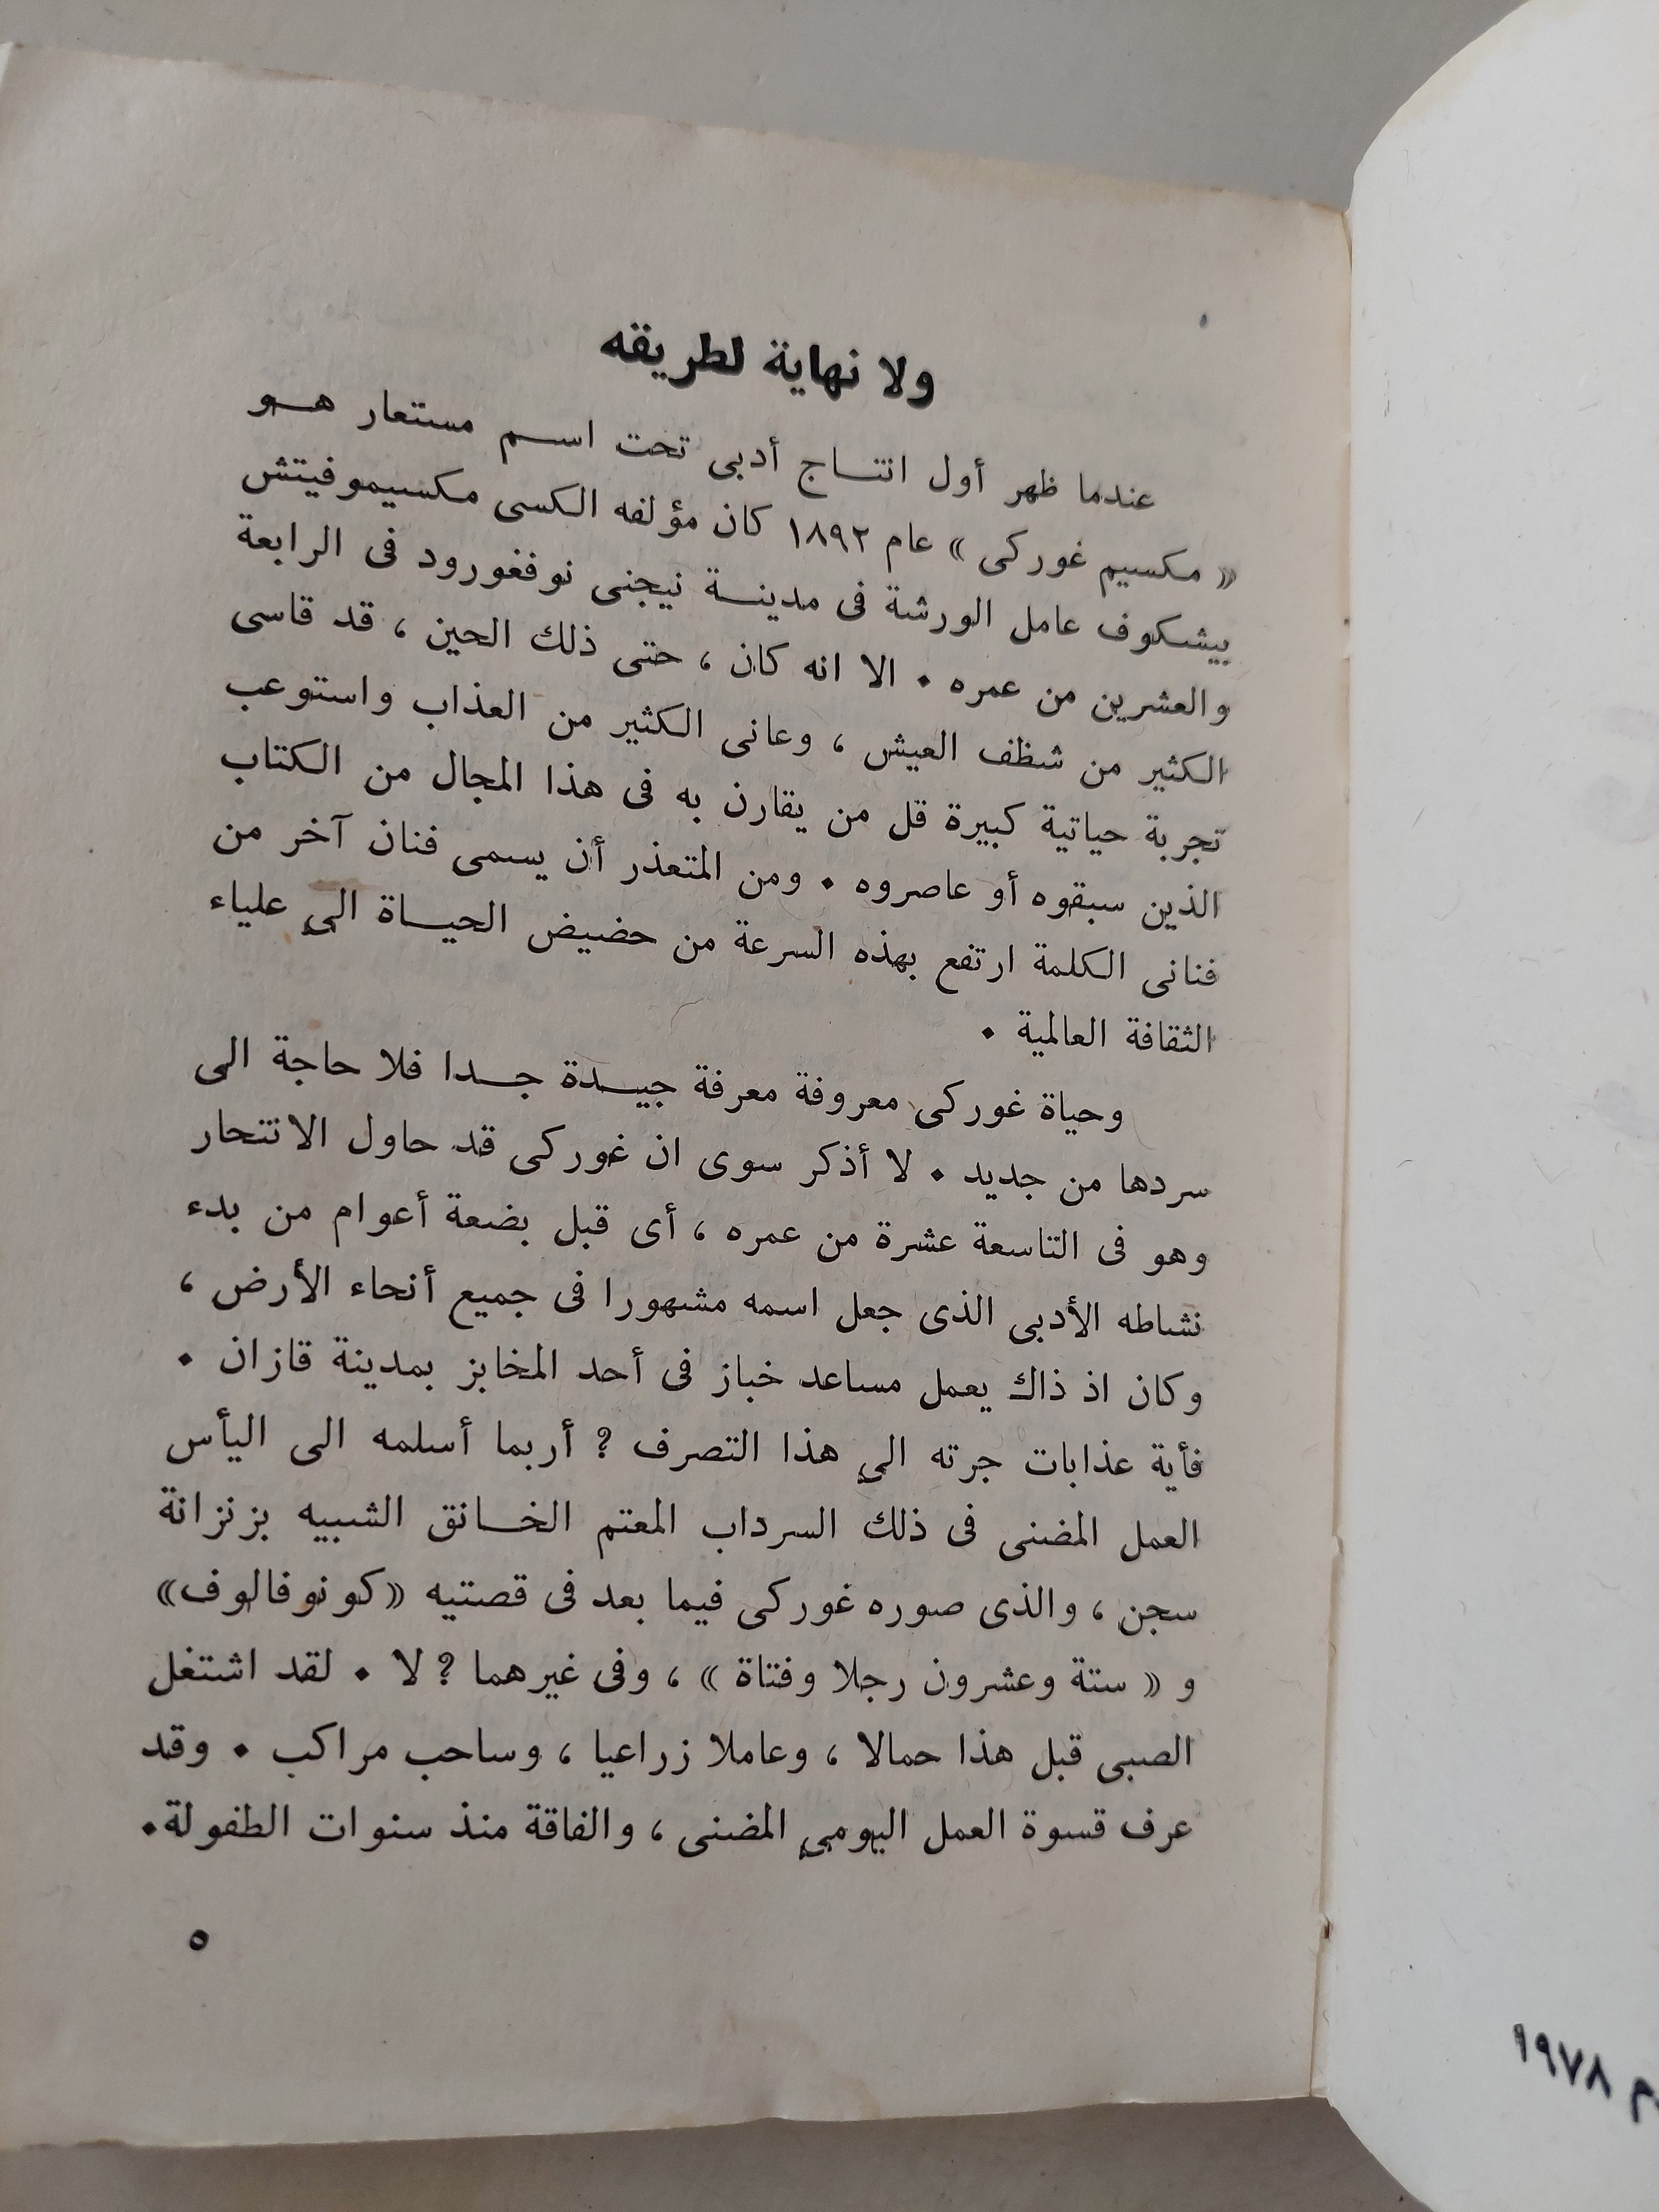 ولا نهاية لطريقه
عندما ظهر أول انتـاج أدبى تحت اسـم مستعار هـو
« مكسيم غوركى » عام ١٨٩٢ كان مؤلفه الكسى مكسيموفيتش
بيشكوف عامل الورشة فى مدينـة نيجنى نوفغورود فى الرابعة
والعشرين من عمره . الا انه كان ، حتى ذلك الحين ، قد قاسى
الكثير من شظف العيش ، وعانى الكثير من العذاب واستوعب
تجربة حياتية كبيرة قل من يقارن به فى هذا المجال من الكتاب
الذين سبقوه أو عاصروه . ومن المتعذر أن يسمى فنان آخر من
فنانى الكلمة ارتفع بهذه السرعة من حضيض الحيـاة الى علياء
الثقافة العالمية .
وحياة غوركى معروفة معرفة جيـدة جـدا فلا حاجة الى
سردها من جديد . لا أذكر سوى ان غوركى قد حاول الانتحار
وهو فى التاسعة عشرة من عمره ، أى قبل بضعة أعوام من بدء
نشاطه الأدبى الذى جعل اسمه مشهورا فى جميع أنحاء الأرض ،
وكان اذ ذاك يعمل مساعد خباز فى أحد المخابز بمدينة قازان .
فأية عذابات جرته الى هذا التصرف ؟ أربما أسلمه الى اليأس
العمل المضنى فى ذلك السرداب المعتم الخـانق الشبيه بزنزانة
سجن ، والذى صوره غوركى فيما بعد فى قصتيه «كونوفالوف»
و « ستة وعشرون رجلا وفتاة » ، وفى غيرهما ؟ لا . لقد اشتغل
الصبى قبل هذا حمالا ، وعاملا زراعيا ، وساحب مراكب . وقد
عرف قسوة العمل اليومي المضنى ، والفاقة منذ سنوات الطفولة.
٥
م ١٩٧٨